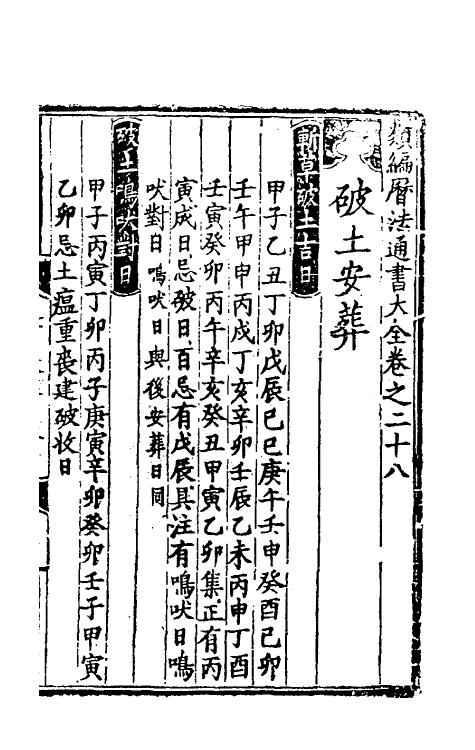 類編曆法通書大全卷之二十八
破土安葬
斬草破土吉日
甲子乙丑丁卯戊辰己巳庚午壬申癸酉己卯
壬午甲申丙戌丁亥辛卯壬辰乙未丙申丁酉
壬寅癸卯丙午辛亥癸丑甲寅乙卯集正有丙
寅成日忌破日百忌有戊辰具注有鳴吠日鳴
吠對日鳴吠日與後安葬日同
破土鳴吠對日
甲子丙寅丁卯丙子庚寅辛卯癸卯壬子甲寅
乙卯忌土瘟重喪建破收日